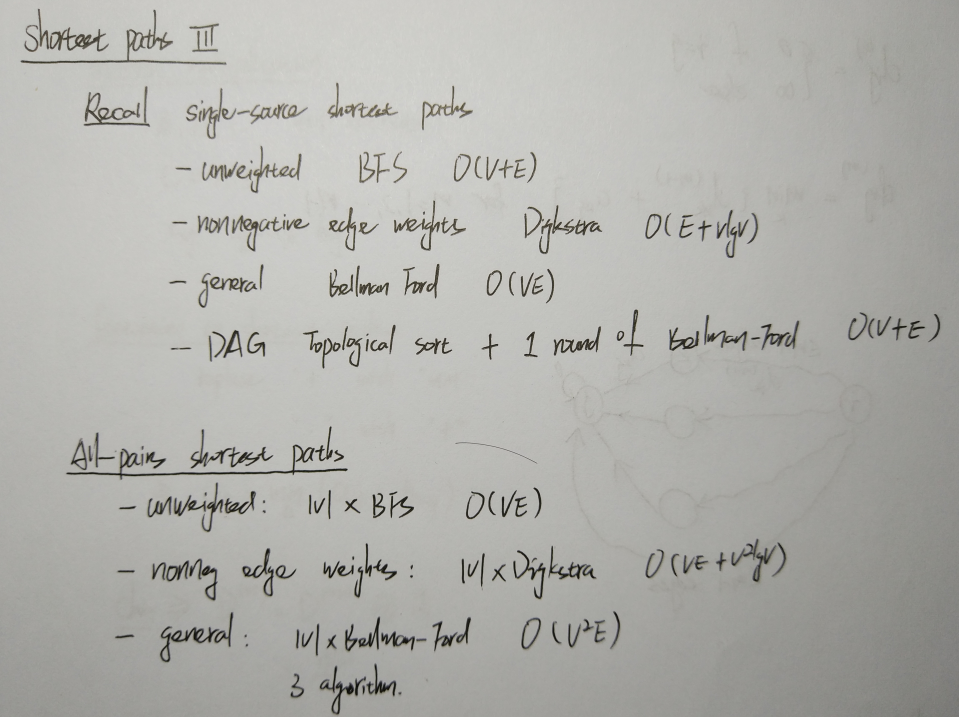 Shortest paths III
Recall single-source shortest paths
- unweighted BFS O(V+E)
- nonnegative edge weights Dijkstra O(E+VlgV)
- general Bellman Ford O(VE)
- DAG Topological sort + 1 round of Bellman-Ford O(V+E)
All-pairs shortest paths
- unweighted: |V| × BFS O(VE)
- nonneg edge weights: |V| × Dijkstra O(VE+V²lgV)
- general: |V| × Bellman-Ford O(V²E)
3 algorithm.